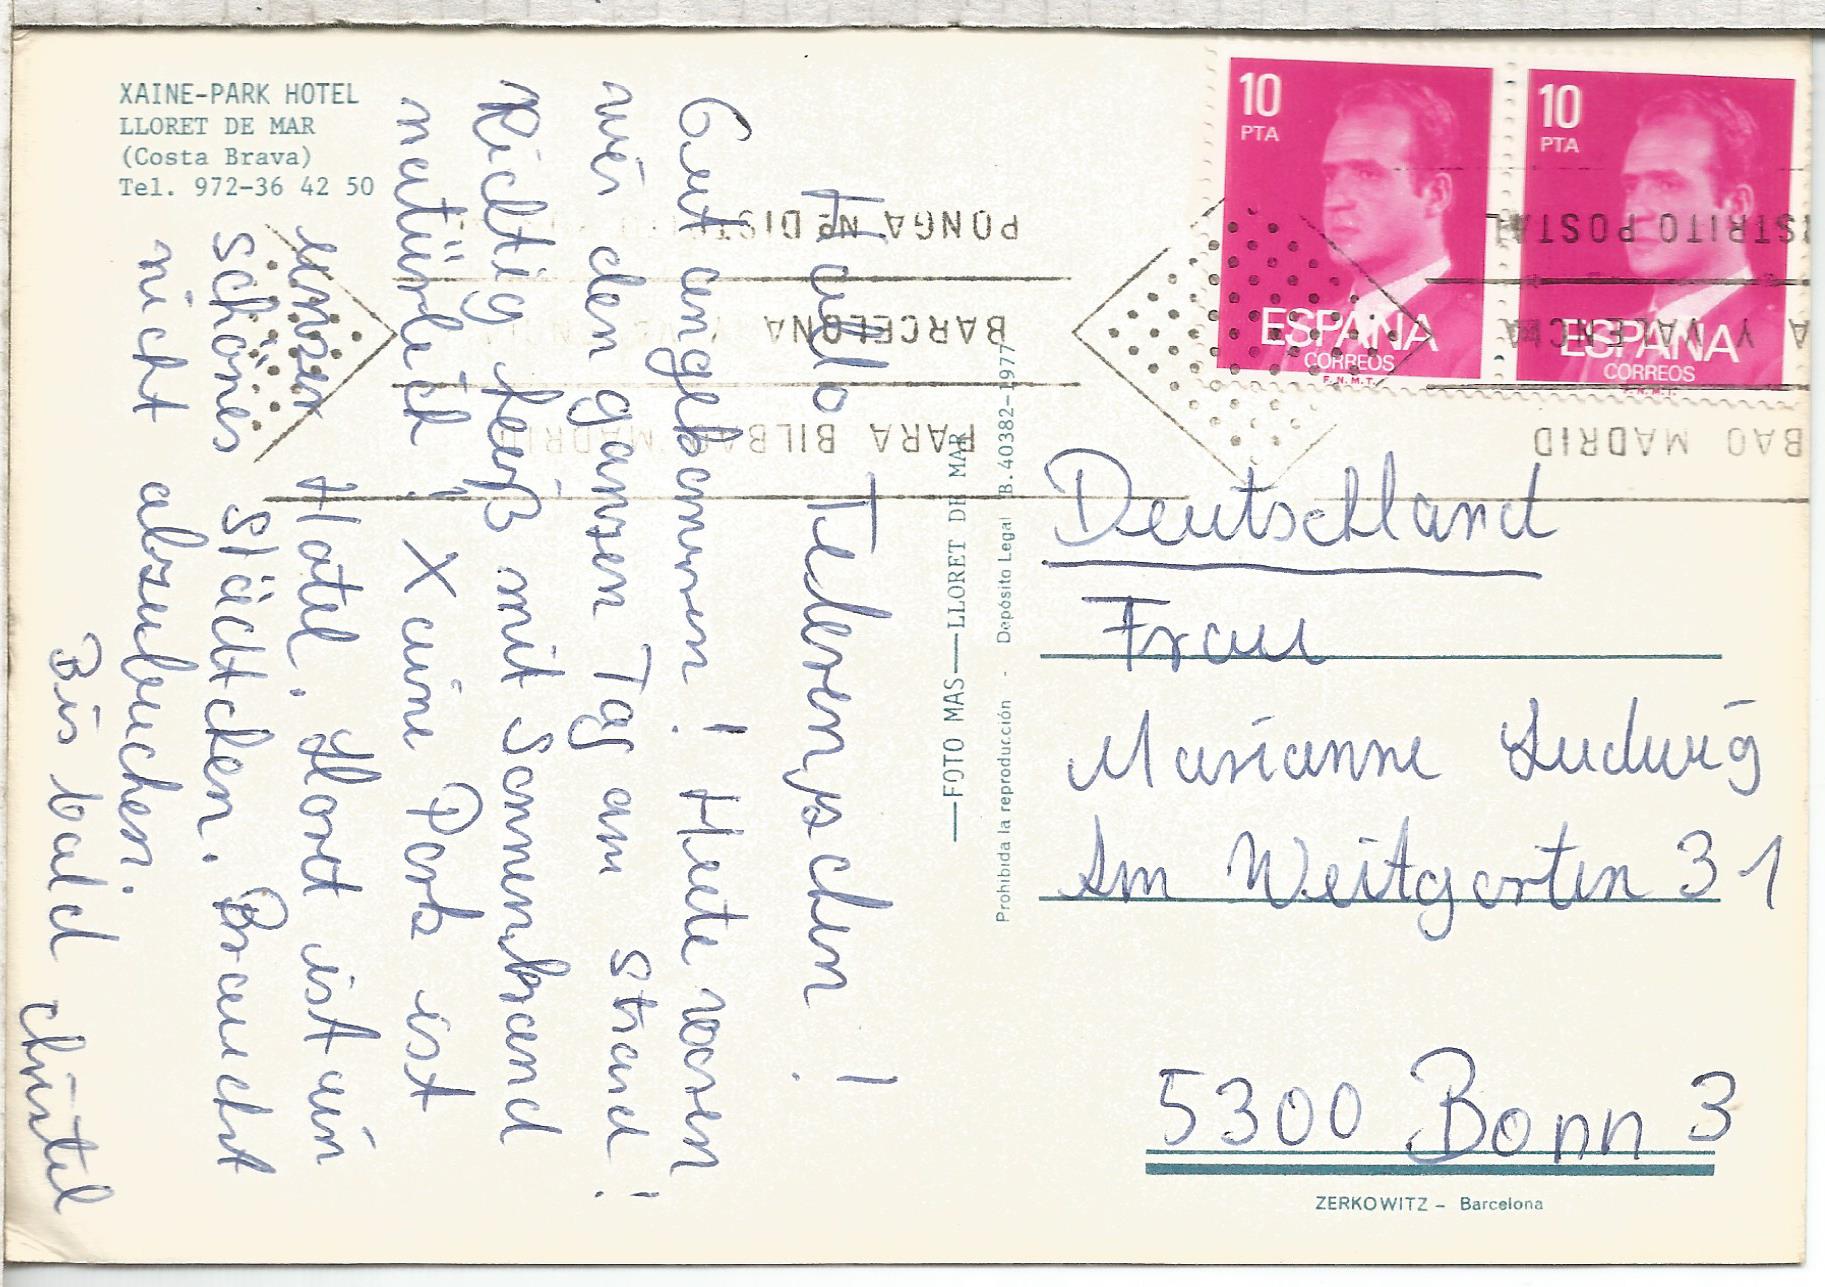 XAINE-PARK HOTEL
LLORET DE MAR
(Costa Brava)
Tel. 972-36 42 50
Hallo !
Gut angekommen! Heute waren
wir den ganzen Tag am Strand!
Richtig heiß mit Sonnenbrand
natürlich! Xaine Park ist
unser Hotel. Dort ist ein
schönes Städtchen. Brauchst
nicht abzubuchen.
Bis bald Christel
FOTO MAS LLORET DE MAR
Prohibida la reproducción - Depósito Legal B. 40382-1977
10
PTA
ESPAÑA
CORREOS
F.N.M.T.
10
PTA
ESPAÑA
CORREOS
F.N.M.T.
PONGA Nº DISTRITO POSTAL
BARCELONA Y VALENCIA
PARA BILBAO MADRID
Deutschland
Frau
Marianne Ludwig
Am Weitgarten 31
5300 Bonn 3
ZERKOWITZ – Barcelona